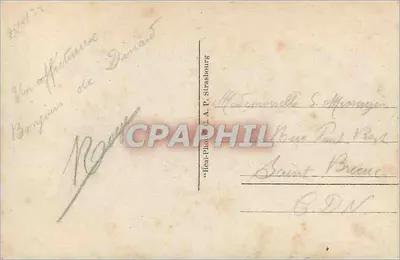 Un affectueux
Bonjour de Dinard
"Réal-Photo" A. P. Strasbourg
CPAPHIL
Mademoiselle S.
Rue Paul Bert
Saint Brieuc
C.D.N.